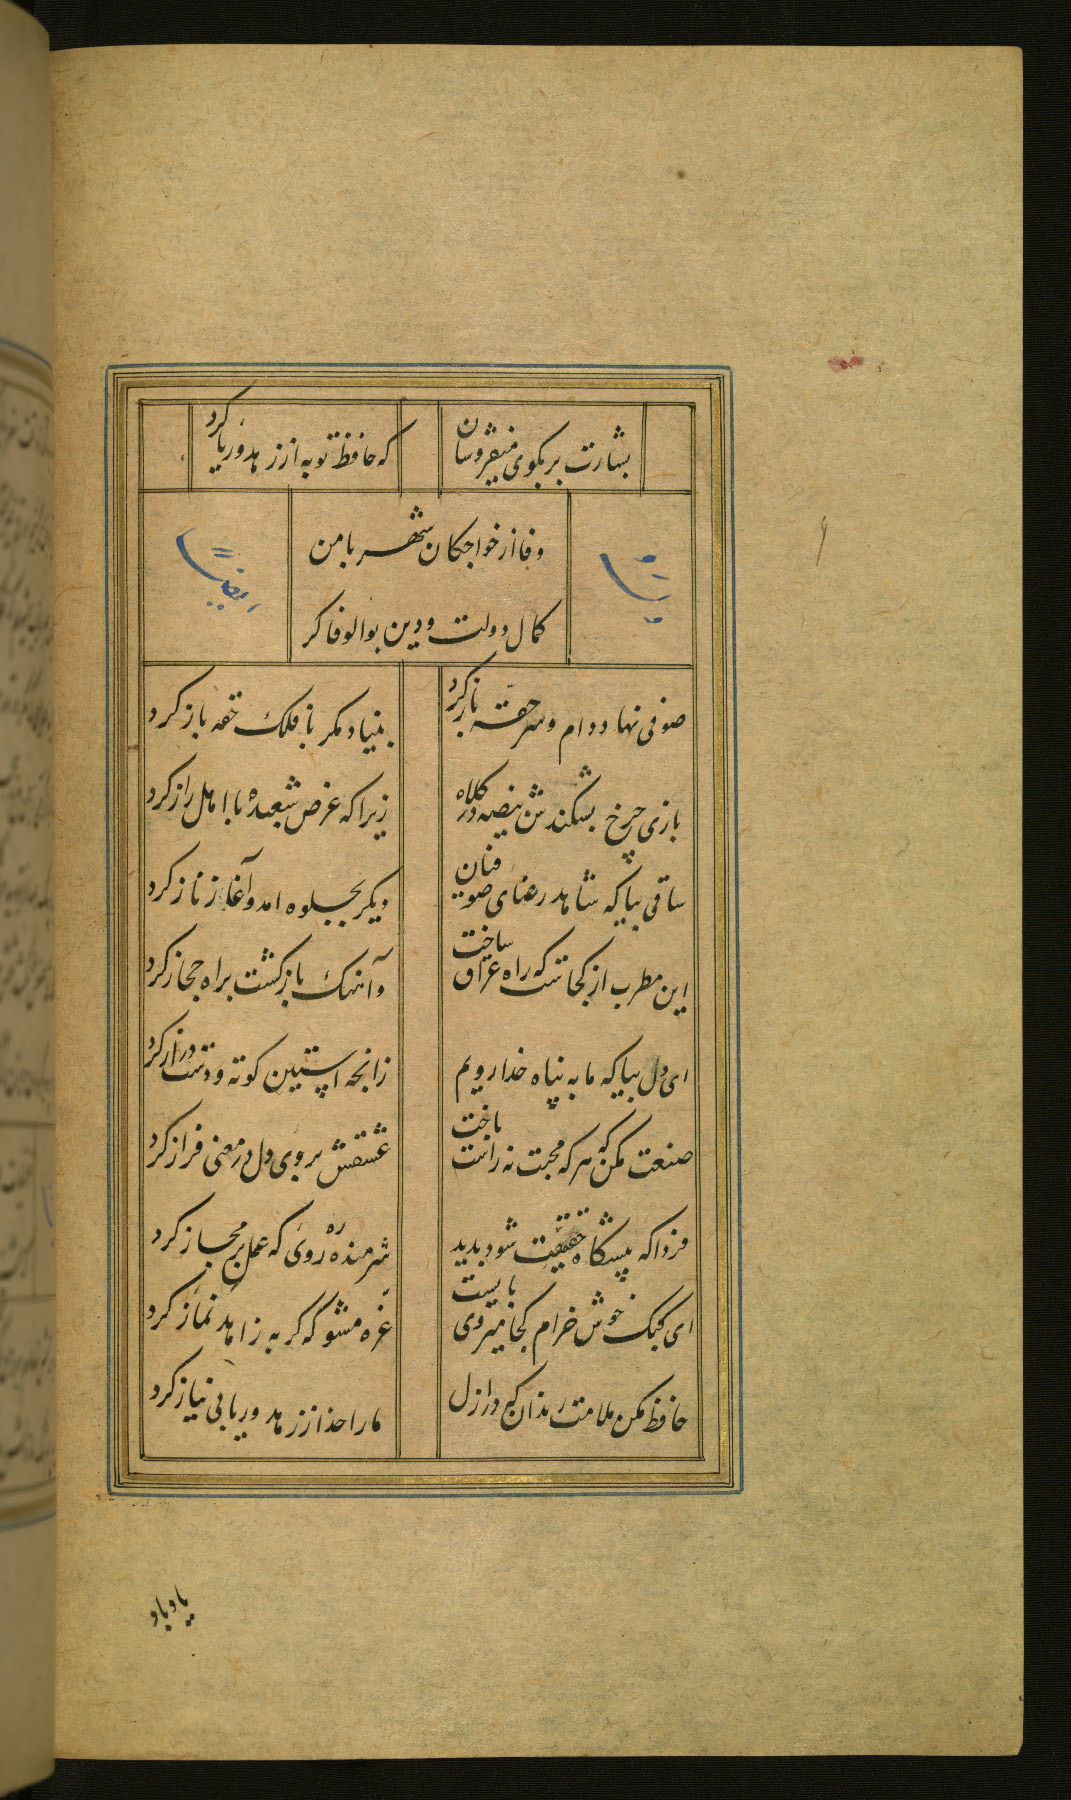 بشارت بر بکوی میفروشان
که حافظ توبه از زهد و ریا کرد
وفا از خواجکان شهر با من
کمال دولت و دین بوالوفا کرد
صوفی نهاد دام و سر حقه باز کرد
بنیاد مکر با فلک حقه باز کرد
بازی چرخ بشکندش بیضه در کلاه
زیرا که عرض شعبده با اهل راز کرد
ساقی بیا که شاهد رعنای صوفیان
دیکر بجلوه امد و آغاز ناز کرد
این مطرب از کجاست که راه عراق ساخت
و آهنک بازکشت براه حجاز کرد
ای دل بیا که ما به پناه خدا رویم
زانچه آستین کوته و دست دراز کرد
صنعت مکن که هر که محبت نه راست باخت
عشقش بروی دل در معنی فراز کرد
فردا که پیشکاه حقیقت شود پدید
شرمنده ره روی که عمل بر مجاز کرد
ای کبک خوش خرام کجا میروی بایست
غره مشو که کربه زاهد نماز کرد
حافظ مکن ملامت رندان که در ازل
ما را خدا از زهد و ریا بی نیاز کرد
یاد باد